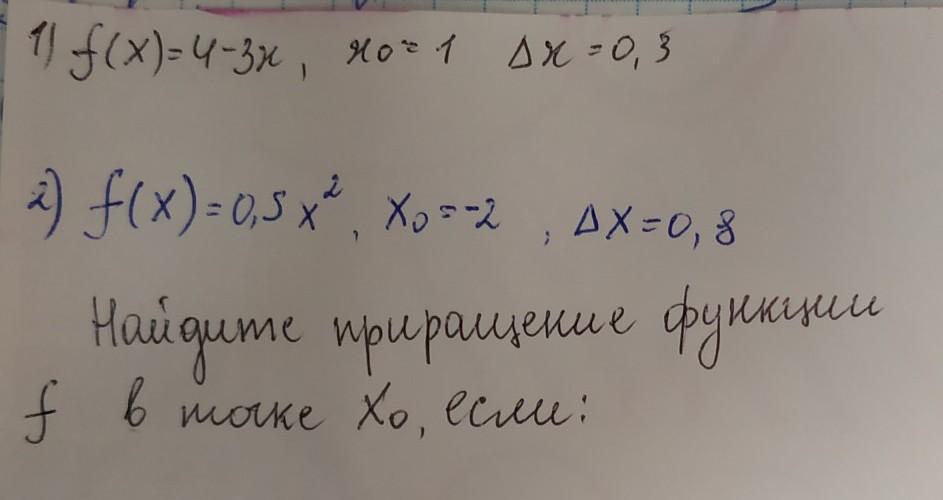 1) f(x)=4-3x, x0=1 Δx=0,3
2) f(x)=0,5x², x0=-2, Δx=0,8
Найдите приращение функции
f в точке x0, если: